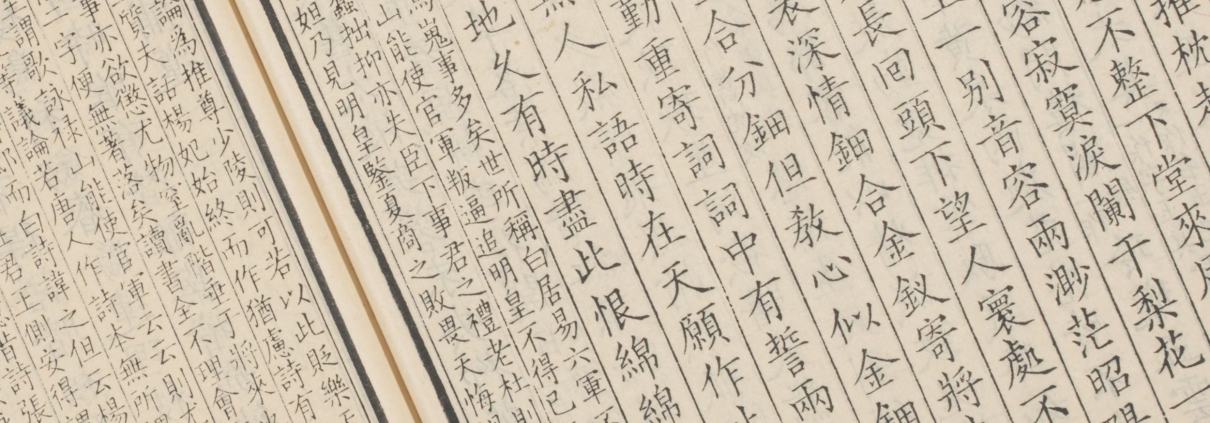 推枕
不整下堂來
容寂寞淚闌干梨花一
一別音容兩渺茫昭
長回頭下望人寰處不
深情鈿合金釵寄將
合分鈿但教心似金鈿
動重寄詞詞中有誓兩
人私語時在天願作
地久有時盡此恨綿綿
嵬事多矣世所稱白居易六軍不
山能使官軍叛逼追明皇不得已
蠢拙抑亦失臣下事君之禮老杜則
妲乃見明皇鑒夏商之敗畏天悔
論為推尊少陵則可若以此貶樂天
質夫話楊妃始終而作猶慮詩有
事亦欲懲尤物窒亂階垂于將來
一字便無著落矣讀書全不理會
謂歌詠祿山能使官軍云云則才
等議論若唐人作詩本無所
而白詩諱之但云楊
君王側安得謂
昔詩張